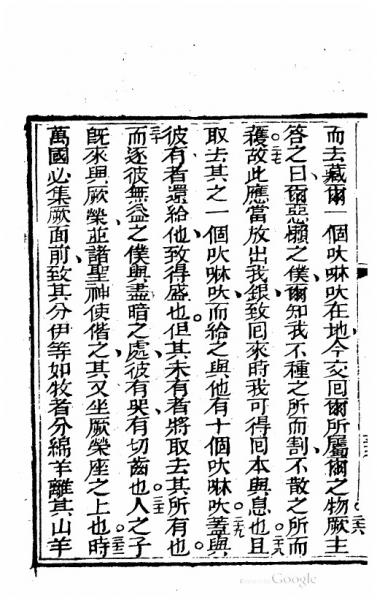 而去藏爾一個吠啉吠在地今交囘爾所屬爾之物。二六厥主
答之曰爾惡懶之僕爾知我不種之所而割不散之所而
穫。二七故此應當放出我銀致囘來時我可得囘本與息也。二八且
取去其之一個吠啉吠而給之與他有十個吠啉吠。二九蓋與
彼有者還給他致得盛也但其未有者將取去其所有也。
三十而逐彼無益之僕與盡暗之處彼有哭有切齒也。三一人之子
既來與厥榮並諸聖神使偕之其又坐厥榮座之上也。三二時
萬國必集厥面前致其分伊等如牧者分綿羊離其山羊
Google